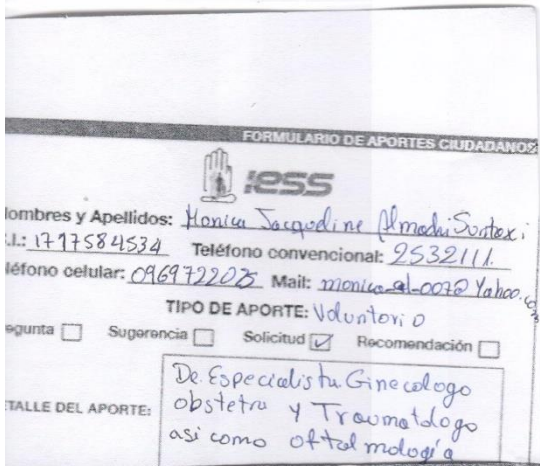 FORMULARIO DE APORTES CIUDADANOS
IESS
ombres y Apellidos: Monica Jacqueline
.I.: 1717584534 Teléfono convencional: 2532111.
léfono celular: 0969722025 Mail: Yahoo.
TIPO DE APORTE: Voluntario
egunta Sugerencia Solicitud Recomendación
De Especialista Ginecologo
ETALLE DEL APORTE: obstetra y Traumatologo
asi como oftalmología